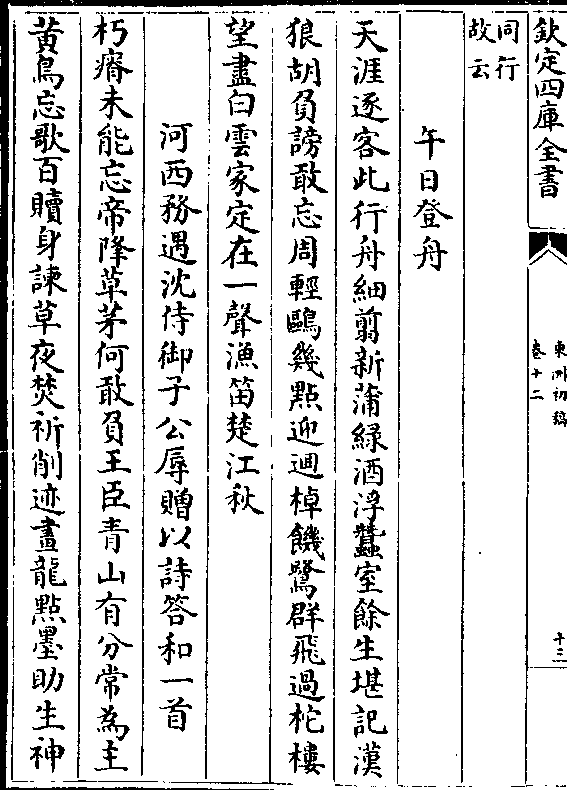 欽定四庫全書
東洲初稿
卷十二
十三
同行
故云
午日登舟
天涯逐客此行舟細翦新蒲緑酒浮蠶室餘生堪記漢
狼胡負謗敢忘周輕鷗幾點迎迴棹饑鷺群飛過柁樓
望盡白雲家定在一聲漁笛楚江秋
河西務遇沈侍御子公辱贈以詩答和一首
朽瘠未能忘帝降草茅何敢負王臣青山有分常為主
黃鳥忘歌百贖身諫草夜焚祈削迹畫龍點墨助生神